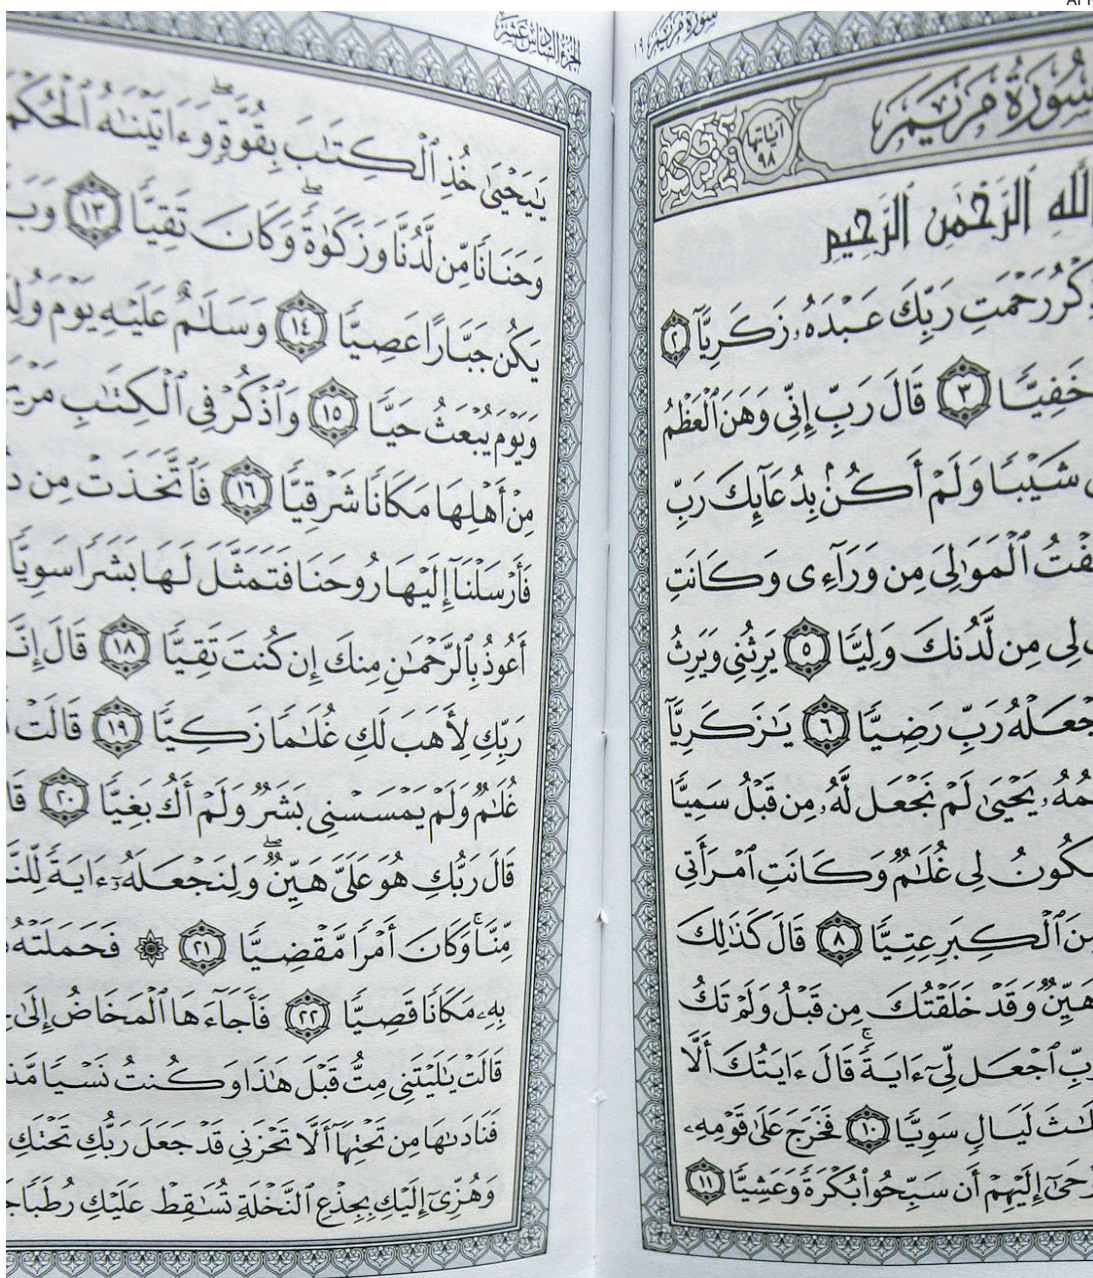 سُورَةُ مَرْيَم ١٩
سُورَةُ مَرْيَمَ
آيَاتُهَا ٩٨
ٱللَّهِ ٱلرَّحْمَٰنِ ٱلرَّحِيمِ
رَحْمَتِ رَبِّكَ عَبْدَهُۥ زَكَرِيَّآ ٢
خَفِيًّا ٣ قَالَ رَبِّ إِنِّى وَهَنَ ٱلْعَظْمُ
شَيْبًا وَلَمْ أَكُنۢ بِدُعَآئِكَ رَبِّ
ٱلْمَوَٰلِىَ مِن وَرَآءِى وَكَانَتِ
لِى مِن لَّدُنكَ وَلِيًّا ٥ يَرِثُنِى وَيَرِثُ
رَبِّ رَضِيًّا ٦ يَٰزَكَرِيَّآ
يَحْيَىٰ لَمْ نَجْعَل لَّهُۥ مِن قَبْلُ سَمِيًّا
لِى غُلَٰمٌ وَكَانَتِ ٱمْرَأَتِى
ٱلْكِبَرِ عِتِيًّا ٨ قَالَ كَذَٰلِكَ
هَيِّنٌ وَقَدْ خَلَقْتُكَ مِن قَبْلُ وَلَمْ تَكُ
ٱجْعَل لِّىٓ ءَايَةً ۚ قَالَ ءَايَتُكَ أَلَّا
لَيَالٍ سَوِيًّا ١٠ فَخَرَجَ عَلَىٰ قَوْمِهِۦ
إِلَيْهِمْ أَن سَبِّحُوا۟ بُكْرَةً وَعَشِيًّا ١١
الجُزْءُ السَّادِسَ عَشَرَ
يَٰيَحْيَىٰ خُذِ ٱلْكِتَٰبَ بِقُوَّةٍ ۖ وَءَاتَيْنَٰهُ ٱلْحُكْمَ
وَحَنَانًا مِّن لَّدُنَّا وَزَكَوٰةً ۖ وَكَانَ تَقِيًّا ١٣
يَكُن جَبَّارًا عَصِيًّا ١٤ وَسَلَٰمٌ عَلَيْهِ يَوْمَ
وَيَوْمَ يُبْعَثُ حَيًّا ١٥ وَٱذْكُرْ فِى ٱلْكِتَٰبِ
مِنْ أَهْلِهَا مَكَانًا شَرْقِيًّا ١٦ فَٱتَّخَذَتْ مِن
فَأَرْسَلْنَآ إِلَيْهَا رُوحَنَا فَتَمَثَّلَ لَهَا بَشَرًا سَوِيًّا
أَعُوذُ بِٱلرَّحْمَٰنِ مِنكَ إِن كُنتَ تَقِيًّا ١٨ قَالَ
رَبِّكِ لِأَهَبَ لَكِ غُلَٰمًا زَكِيًّا ١٩ قَالَتْ
غُلَٰمٌ وَلَمْ يَمْسَسْنِى بَشَرٌ وَلَمْ أَكُ بَغِيًّا ٢٠
قَالَ رَبُّكِ هُوَ عَلَىَّ هَيِّنٌ ۖ وَلِنَجْعَلَهُۥٓ ءَايَةً
مِّنَّا ۚ وَكَانَ أَمْرًا مَّقْضِيًّا ٢١ ۞ فَحَمَلَتْهُ
بِهِۦ مَكَانًا قَصِيًّا ٢٢ فَأَجَآءَهَا ٱلْمَخَاضُ إِلَىٰ
قَالَتْ يَٰلَيْتَنِى مِتُّ قَبْلَ هَٰذَا وَكُنتُ نَسْيًا
فَنَادَىٰهَا مِن تَحْتِهَآ أَلَّا تَحْزَنِى قَدْ جَعَلَ رَبُّكِ تَحْتَكِ
وَهُزِّىٓ إِلَيْكِ بِجِذْعِ ٱلنَّخْلَةِ تُسَٰقِطْ عَلَيْكِ رُطَبًا